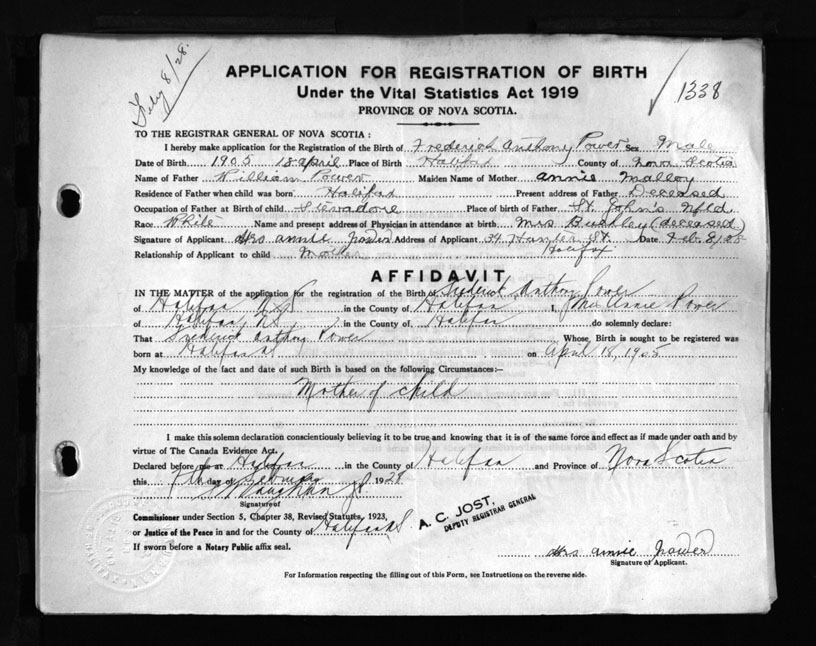 Feby 8/28.
1338
APPLICATION FOR REGISTRATION OF BIRTH
Under the Vital Statistics Act 1919
PROVINCE OF NOVA SCOTIA.
TO THE REGISTRAR GENERAL OF NOVA SCOTIA :
I hereby make application for the Registration of the Birth of Frederick Anthony Power Sex Male
Date of Birth 1905 18 April Place of Birth Halifax County of Nova Scotia
Name of Father William Power Maiden Name of Mother Annie Malloy
Residence of Father when child was born Halifax Present address of Father Deceased
Occupation of Father at Birth of child Stevadore Place of birth of Father St. John's Nfld.
Race White Name and present address of Physician in attendance at birth Mrs (deceased)
Signature of Applicant Mrs Annie Power Address of Applicant 34 St. Date Feb. 8/28
Relationship of Applicant to child Mother Halifax
AFFIDAVIT
IN THE MATTER of the application for the registration of the Birth of Frederick Anthony Power
of Halifax N.S. in the County of Halifax I, Mrs Annie Power
of Halifax, N.S. in the County of Halifax do solemnly declare:
That Frederick Anthony Power Whose Birth is sought to be registered was
born at Halifax on April 18, 1905
My knowledge of the fact and date of such Birth is based on the following Circumstances:-
Mother of child
I make this solemn declaration conscientiously believing it to be true and knowing that it is of the same force and effect as if made under oath and by
virtue of The Canada Evidence Act.
Declared before me at Halifax in the County of Halifax and Province of Nova Scotia
this day of February 1928
Signature of
Commissioner under Section 5, Chapter 38, Revised Statutes, 1923,
or Justice of the Peace in and for the County of Halifax N.S.
A. C. JOST,
DEPUTY REGISTRAR GENERAL
If sworn before a Notary Public affix seal.
Mrs Annie Power
Signature of Applicant.
For Information respecting the filling out of this Form, see Instructions on the reverse side.